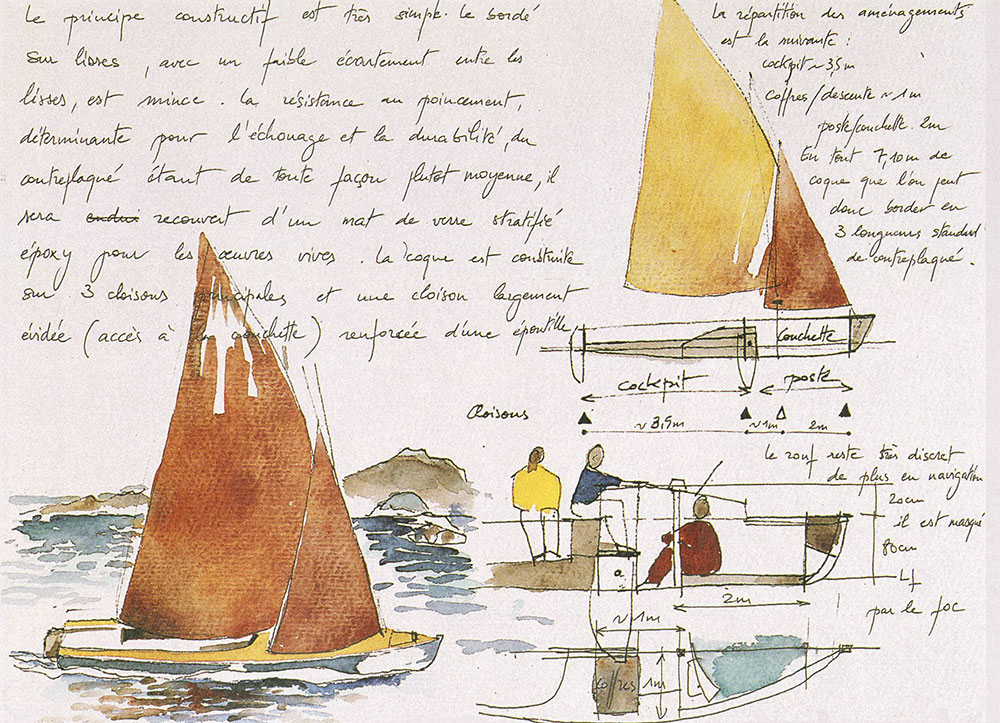 Le principe constructif est très simple. Le bordé
sur lisses, avec un faible écartement entre les
lisses, est mince. La résistance au poinçonnement,
déterminante pour l'échouage et la durabilité, du
contreplaqué étant de toute façon plutôt moyenne, il
sera enduit recouvert d'un mat de verre stratifié
époxy pour les œuvres vives. La coque est construite
sur 3 cloisons principales et une cloison largement
évidée (accès à la couchette) renforcée d'une épontille,
La répartition des aménagements
est la suivante :
cockpit ~ 3,5m
coffres/descente ~ 1m
poste/couchette. 2m
En tout 7,10m de
coque que l'on peut
donc border en
3 longueurs standard
de contreplaqué.
Couchette
cockpit
poste
Cloisons
~ 3,5m
~ 1m
2m
le rouf reste très discret
de plus en navigation
20cm
il est masqué
80cm
Lf
par le foc
2m
~ 1m
coffres 1m